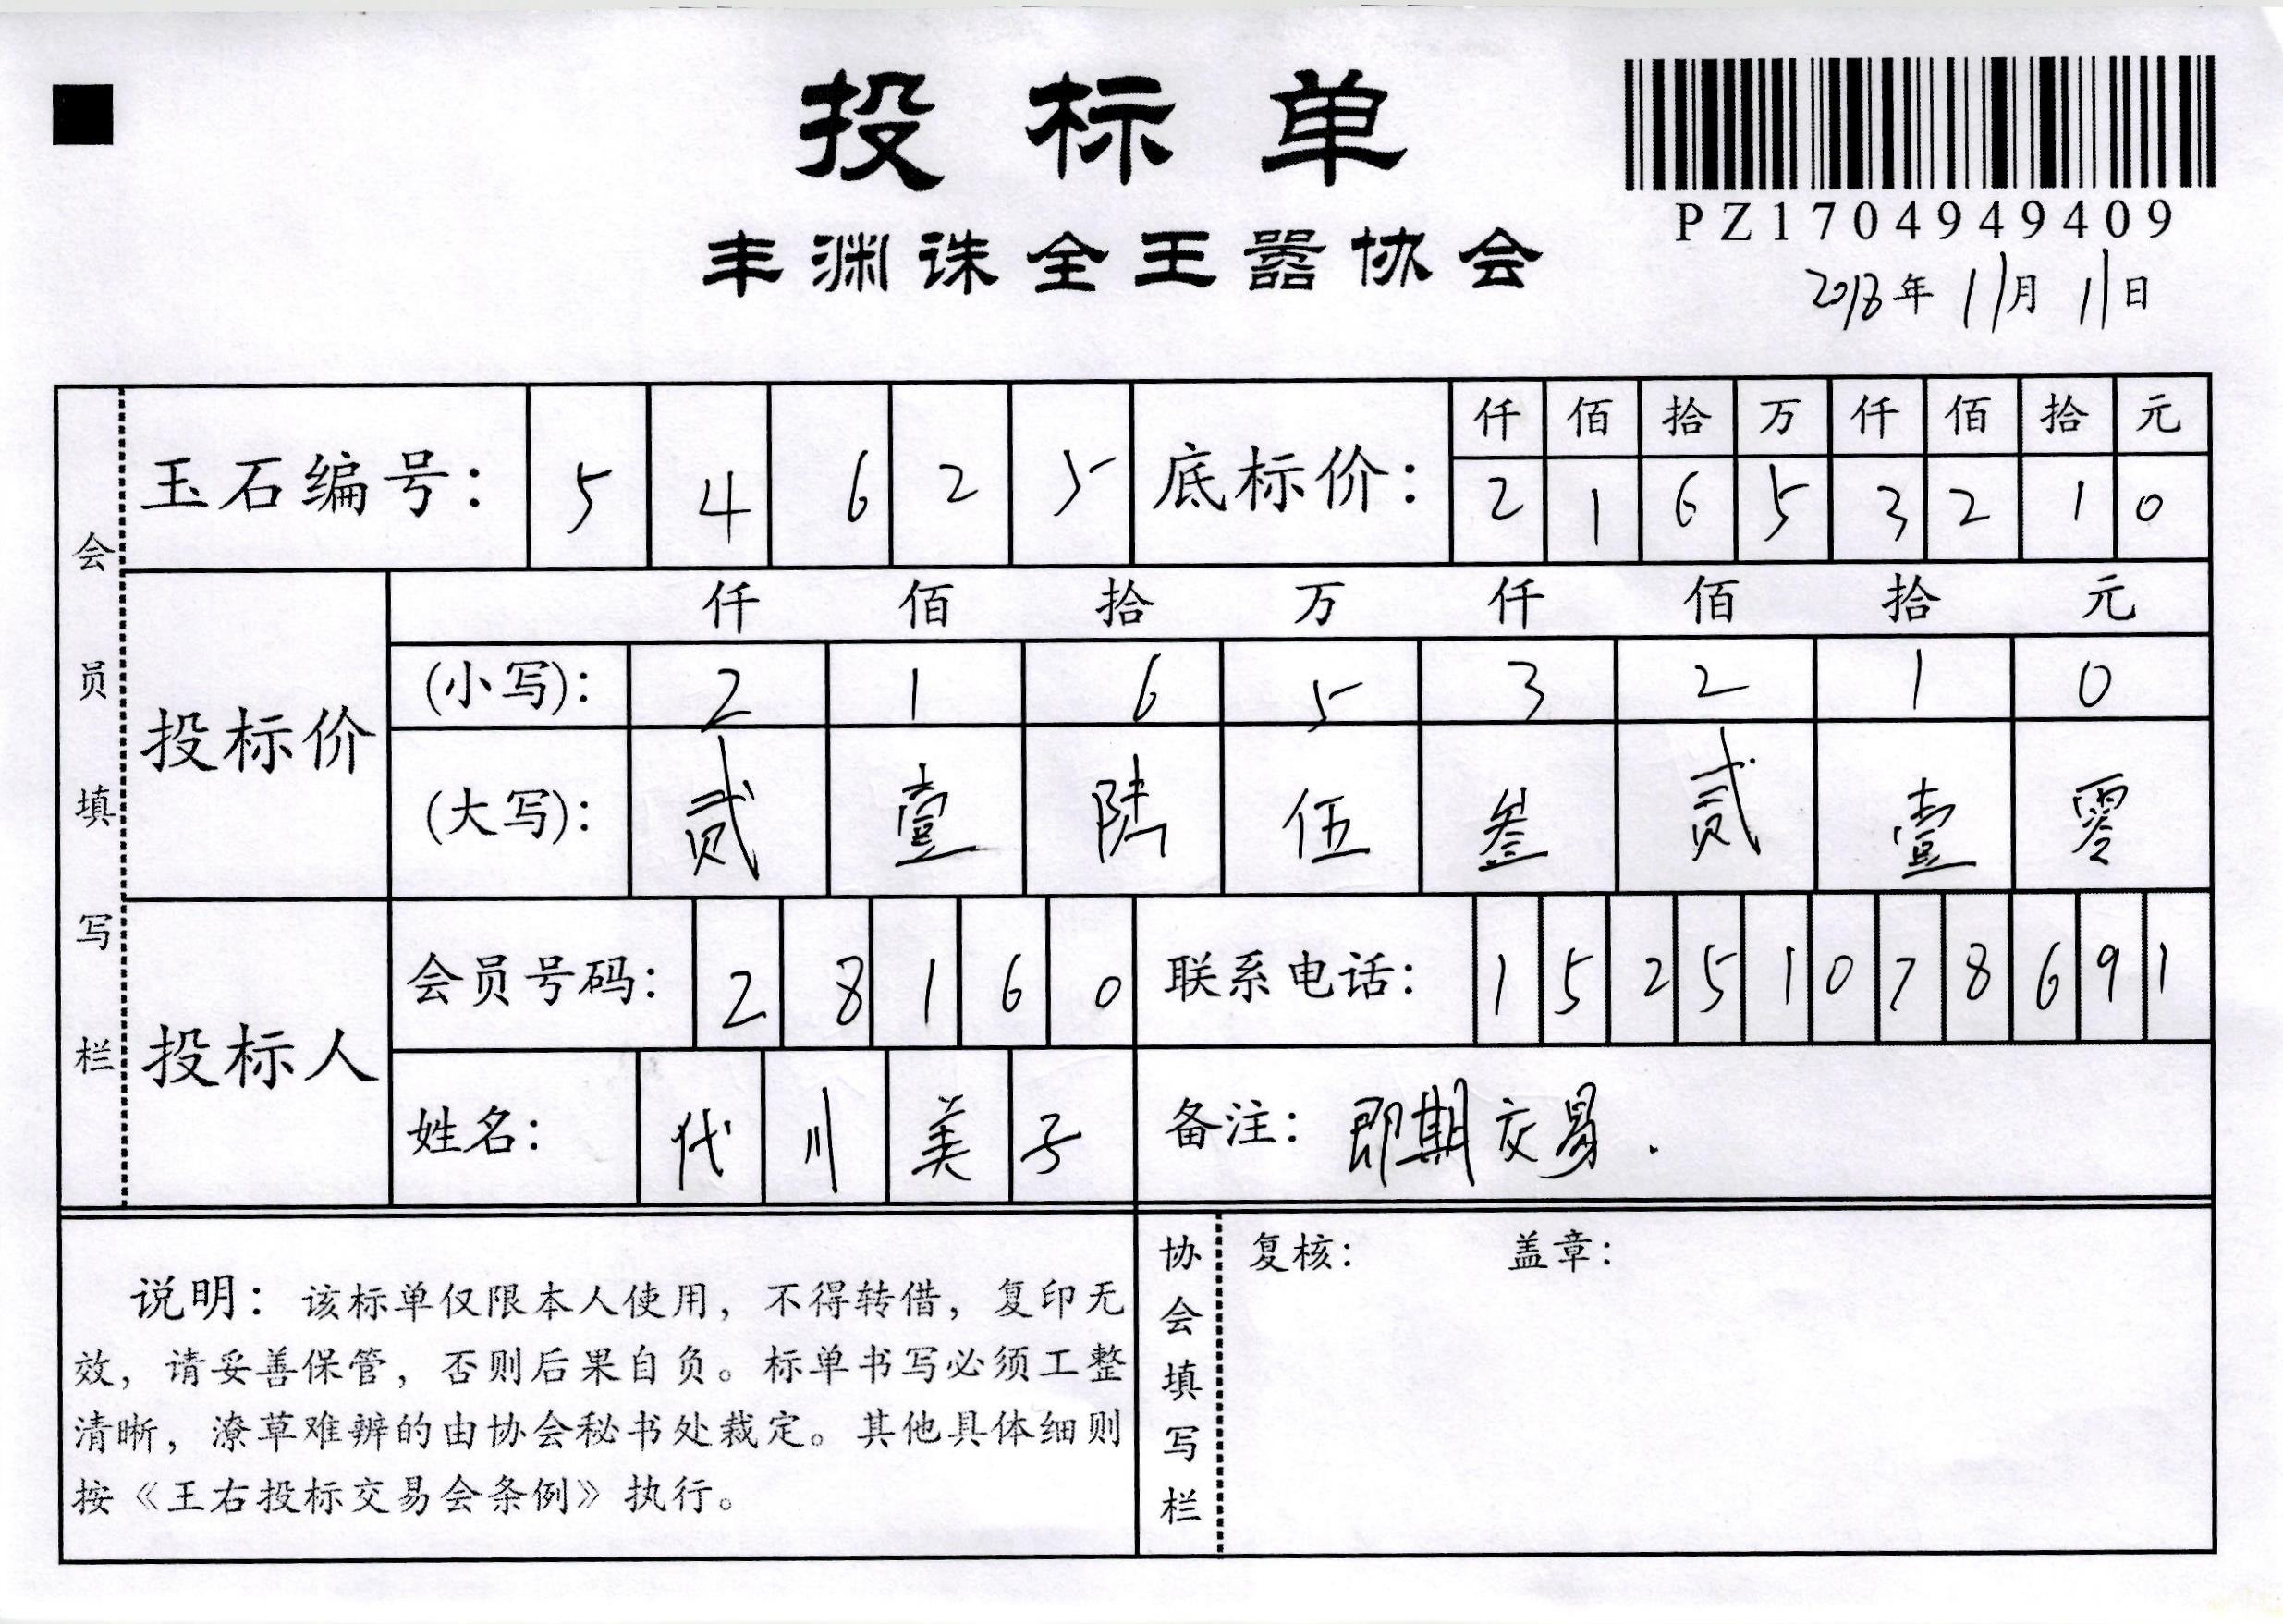 投标单
PZ1704949409
丰渊诛全王嚣协会
2018年11月11日
会员填写栏
玉石编号: 5 4 6 2 5 底标价: 仟 佰 拾 万 仟 佰 拾 元
2 1 6 5 3 2 1 0
投标价 仟 佰 拾 万 仟 佰 拾 元
(小写): 2 1 6 5 3 2 1 0
(大写): 贰 壹 陆 伍 叁 贰 壹 零
投标人 会员号码: 2 8 1 6 0 联系电话: 1 5 2 5 1 0 7 8 6 9 1
姓名: 代 川 美 子 备注: 即期交易.
说明: 该标单仅限本人使用, 不得转借, 复印无
效, 请妥善保管, 否则后果自负。标单书写必须工整
清晰, 潦草难辨的由协会秘书处裁定。其他具体细则
按《王右投标交易会条例》执行。
协会填写栏
复核: 盖章: